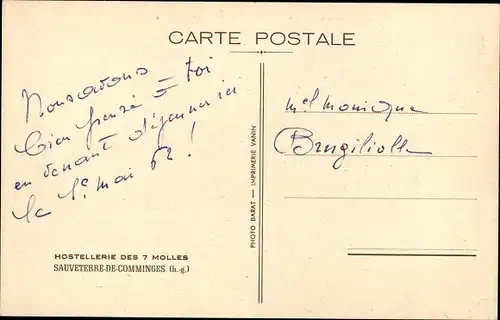 CARTE POSTALE
Nous avons
bien pensé = toi
en venant déjeuner ici
le 1er mai 62 !
Mel Monique
HOSTELLERIE DES 7 MOLLES
SAUVETERRE-DE-COMMINGES (h.-g.)
PHOTO BARAT — IMPRIMERIE VANIN